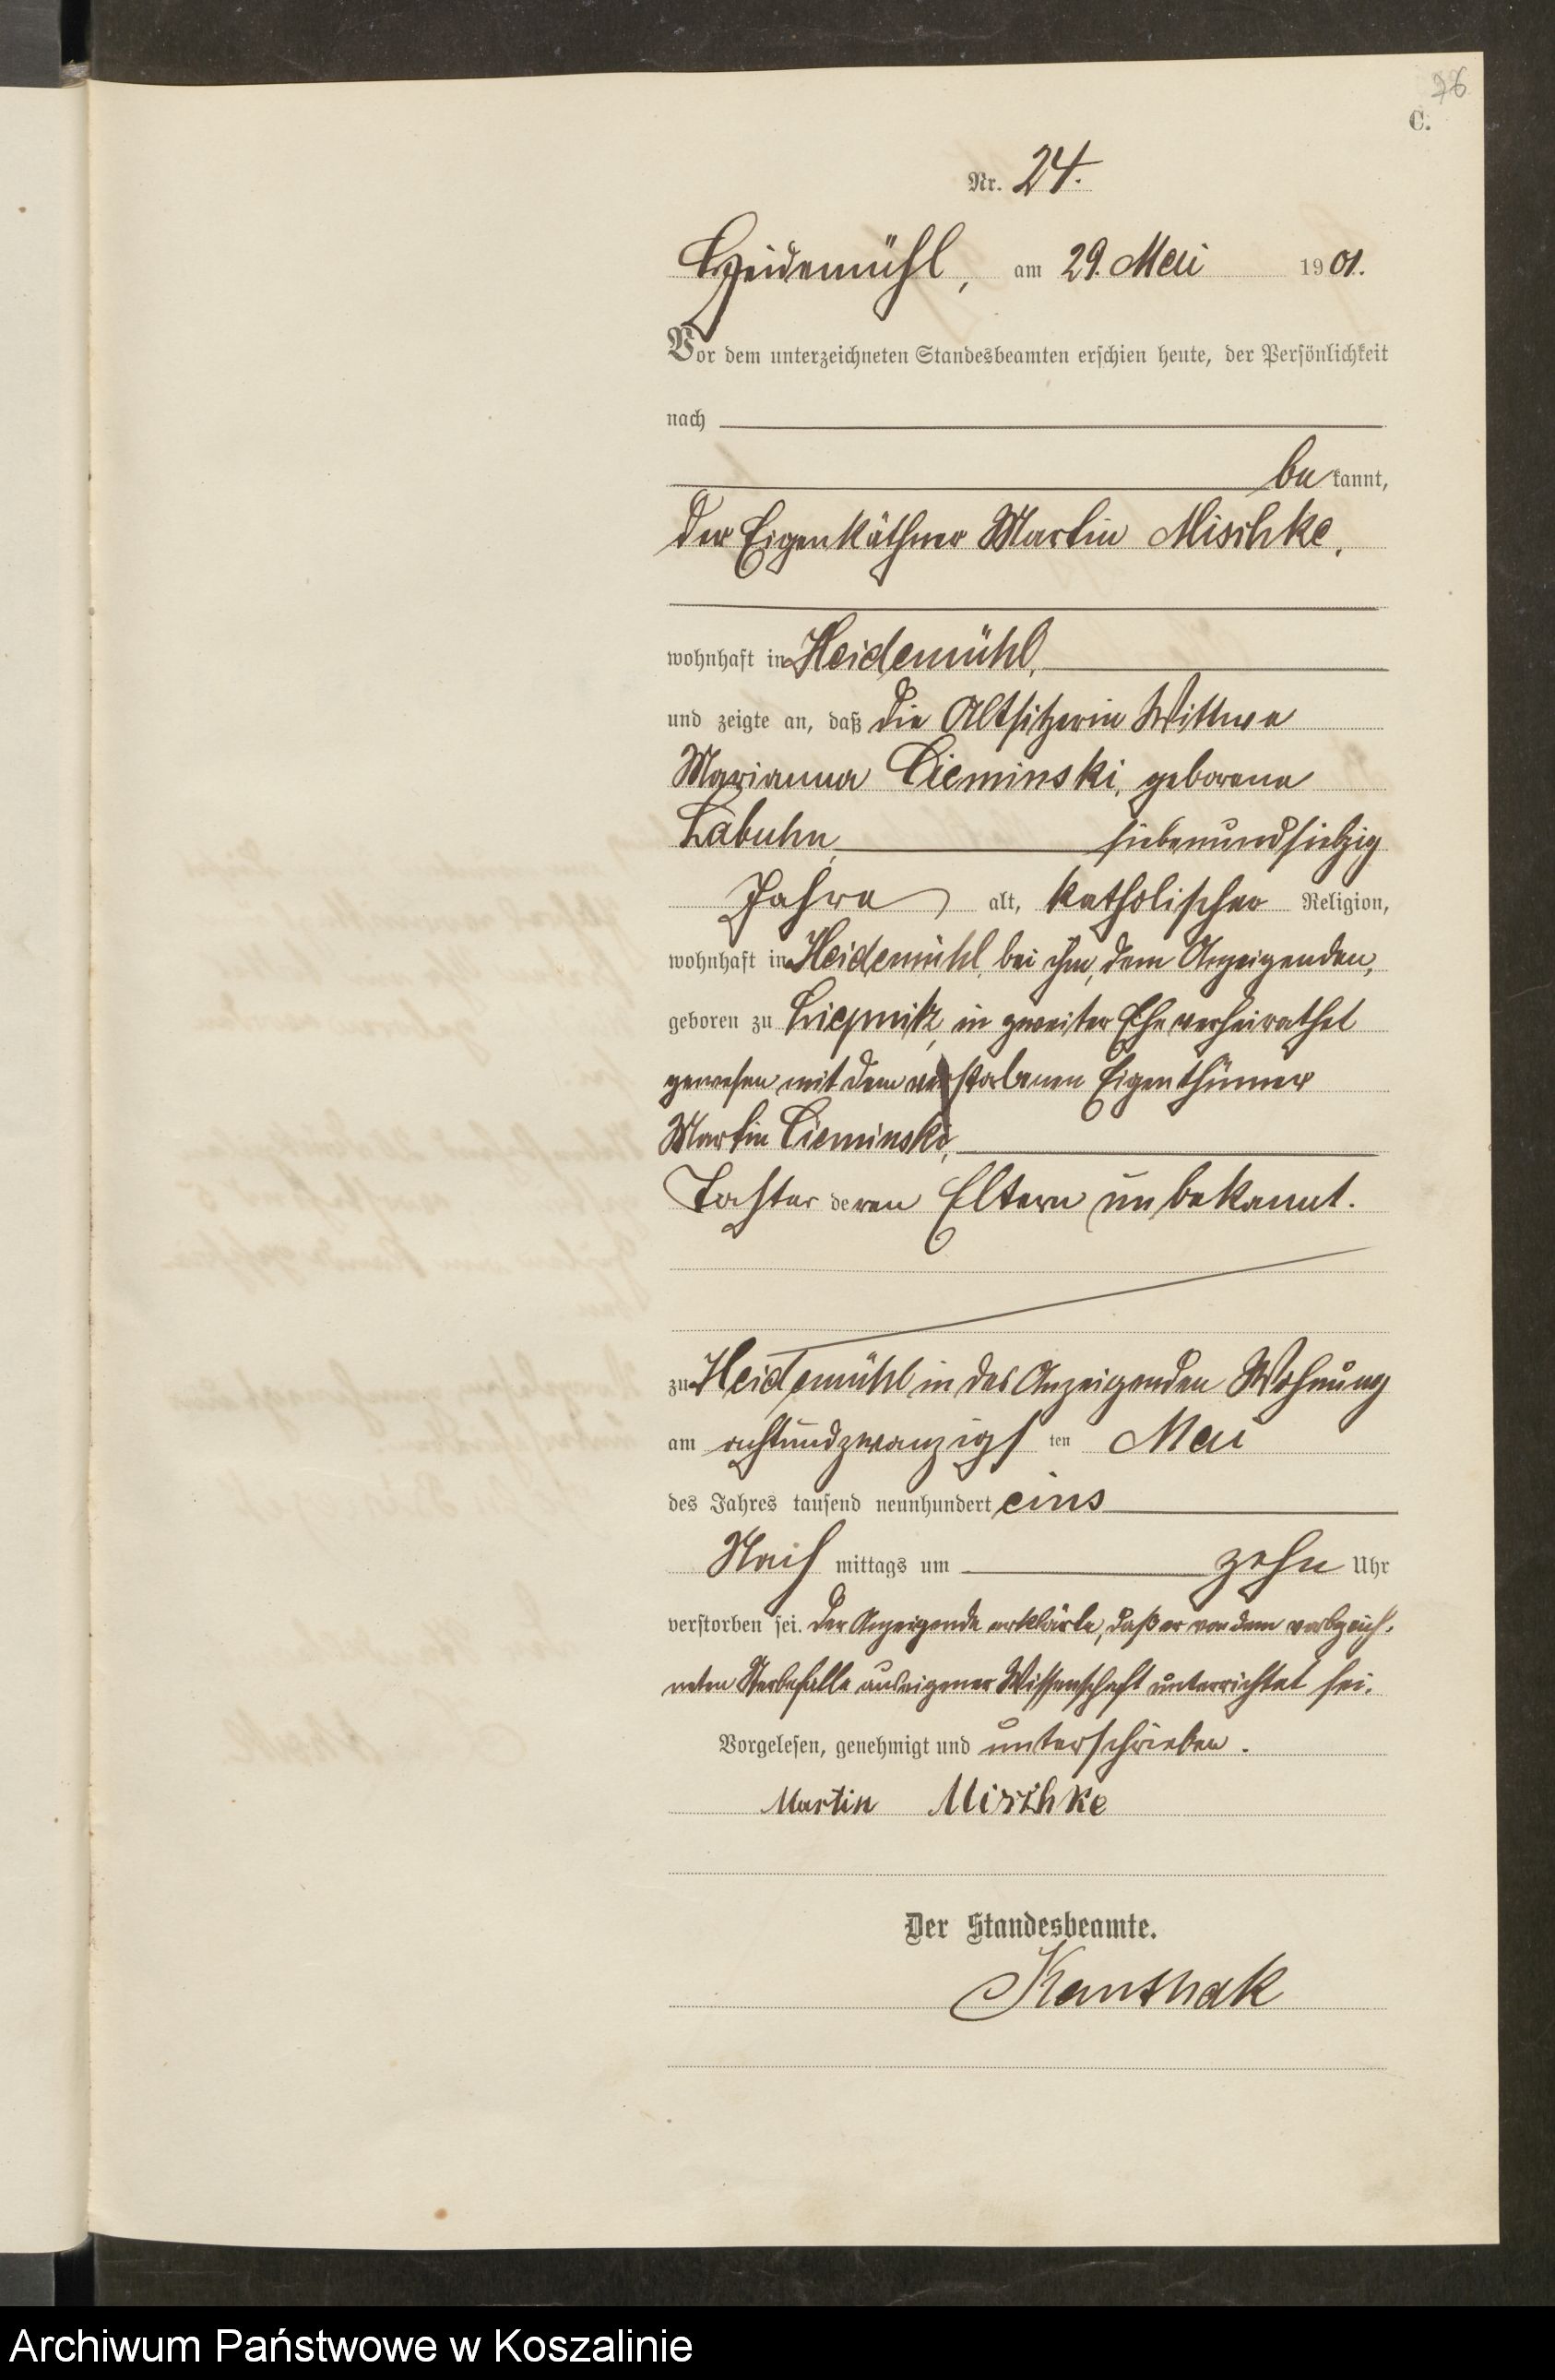 26
C.
Nr. 24.
Heidemühl, am 29. Mai 1901.
Vor dem unterzeichneten Standesbeamten erschien heute, der Persönlichkeit
nach
be kannt,
der Eigenkäthner Martin Mischke,
wohnhaft in Heidemühl,
und zeigte an, daß die Altsitzerin Wittwe
Marianna Cieminski, geborene
Labuhn, siebenundsiebzig
Jahre alt, katholischer Religion,
wohnhaft in Heidemühl, bei ihm, dem Anzeigenden,
geboren zu Liepnitz, in zweiter Ehe verheirathet
gewesen mit dem verstorbenen Eigenthümer
Martin Cieminski,
Tochter deren Eltern unbekannt.
zu Heidemühl in des Anzeigenden Wohnung
am achtundzwanzigs ten Mai
des Jahres tausend neunhundert eins
Nach mittags um zehn Uhr
verstorben sei. Der Anzeigende erklärte, daß er von dem vorbezeich-
neten Sterbefalle aus eigener Wissenschaft unterrichtet sei.
Vorgelesen, genehmigt und unterschrieben.
Martin Mischke
Der Standesbeamte.
Kanthak
Archiwum Państwowe w Koszalinie